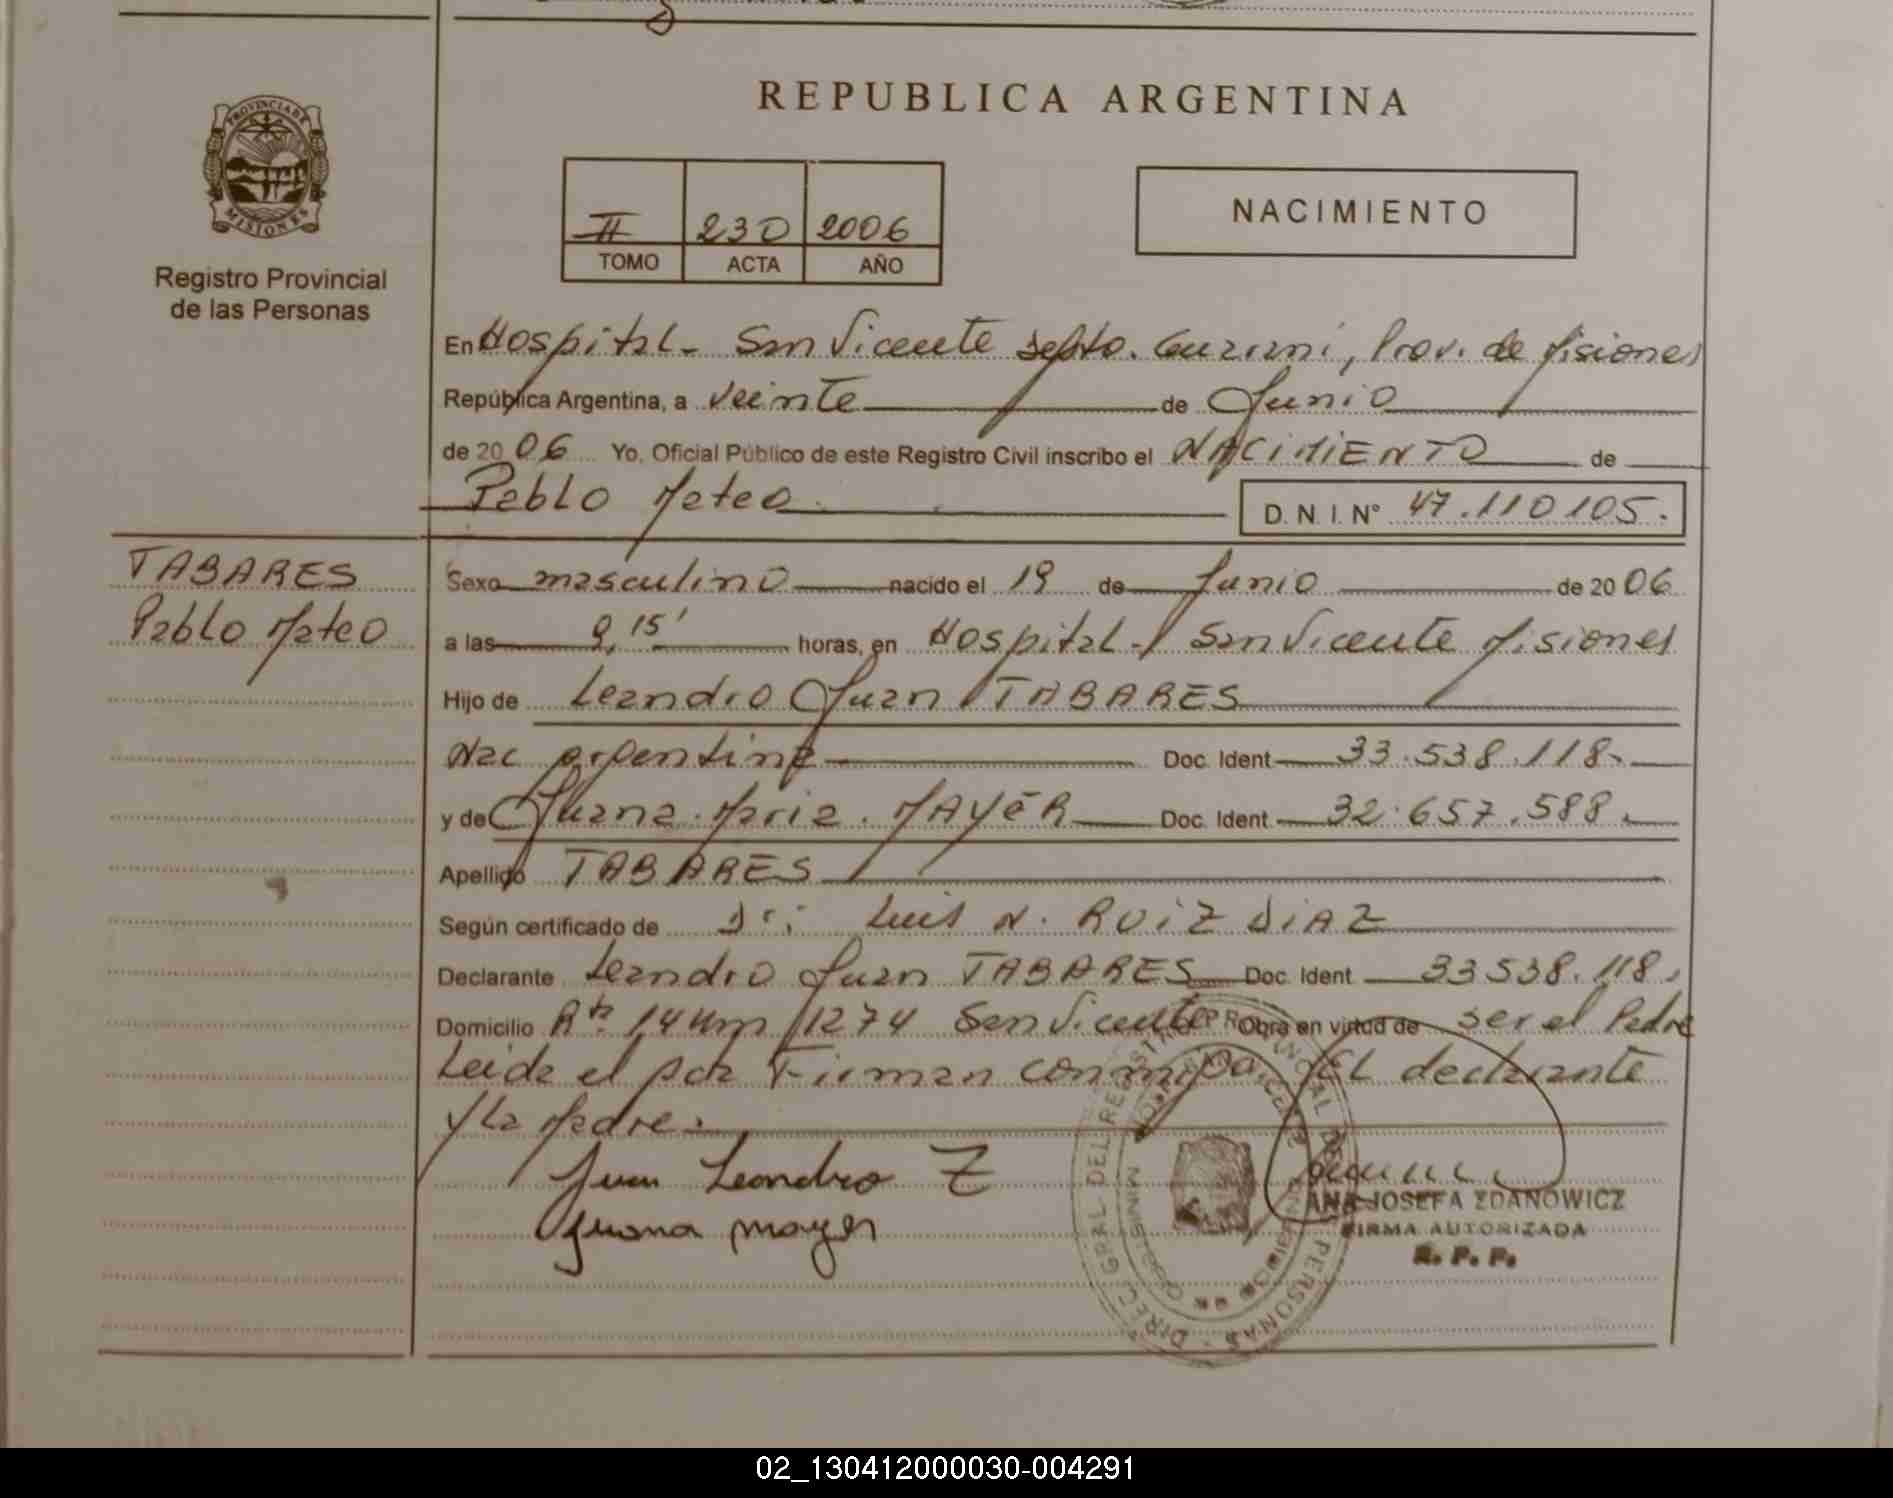 REPUBLICA ARGENTINA
PROVINCIA DE
MISIONES
Registro Provincial
de las Personas
II 230 2006
TOMO ACTA AÑO
NACIMIENTO
En Hospital - San Vicente Depto. Guaraní, Prov. de Misiones
República Argentina, a veinte de Junio
de 20 06 Yo, Oficial Público de este Registro Civil inscribo el NACIMIENTO de
Pablo Mateo. D. N. I. N° 47.110105.
TABARES
Pablo Mateo
Sexo masculino nacido el 19 de Junio de 20 06
a las 9,15' horas, en Hospital - San Vicente Misiones
Hijo de Leandro Juan TABARES
Nac argentina Doc. Ident 33.538.118.
y de Juana Maria MAYER Doc. Ident. 32.657.588.
Apellido TABARES
Según certificado de Dr: Luis N. RUIZ DIAZ
Declarante Leandro Juan TABARES Doc. Ident 33538.118.
Domicilio Rta. 14 Km 1274 San Vicente Obra en virtud de ser el Padre
Leida el acta Firman conmigo. EL declarante
y la Madre.
Juan Leandro T
Juana mayer
DIREC. GRAL. DEL REGISTRO PROVINCIAL DE PERSONAS
ANA JOSEFA ZDANOWICZ
FIRMA AUTORIZADA
R. P. P.
02_130412000030-004291